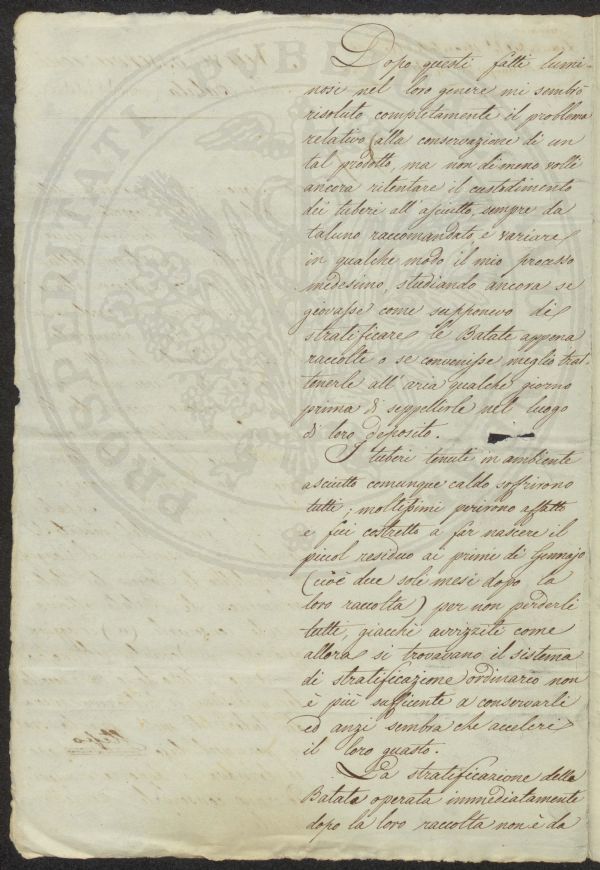 Dopo questi fatti lumi-
nosi nel loro genere mi sembrò
risoluto completamente il problema
relativo alla conservazione di un
tal prodotto, ma non di meno volli
ancora ritentare il custodimento
dei tuberi all'asciutto, sempre da
taluno raccomandato, e variare
in qualche modo il mio processo
medesimo, studiando ancora se
giovasse come supponevo di
stratificare le Batate appena
raccolte o se convenisse meglio trat-
tenerle all'aria qualche giorno
prima di seppellirle nel luogo
di loro deposito.
I tuberi tenuti in ambiente
asciutto comunque caldo soffrirono
tutti; moltissimi perirono affatto
e fui costretto a far nascere il
picol residuo ai primi di Gennajo
(cioè due soli mesi dopo la
loro raccolta) per non perderli
tutti, giacchè avvizziti come
allora si trovavano il sistema
di stratificazione ordinario non
è più sufficente a conservarli
ed anzi sembra che acceleri
il loro guasto.
La stratificazione delle
Batate operata immediatamente
dopo la loro raccolta non è da
PROSPERITATI PVBLICAE